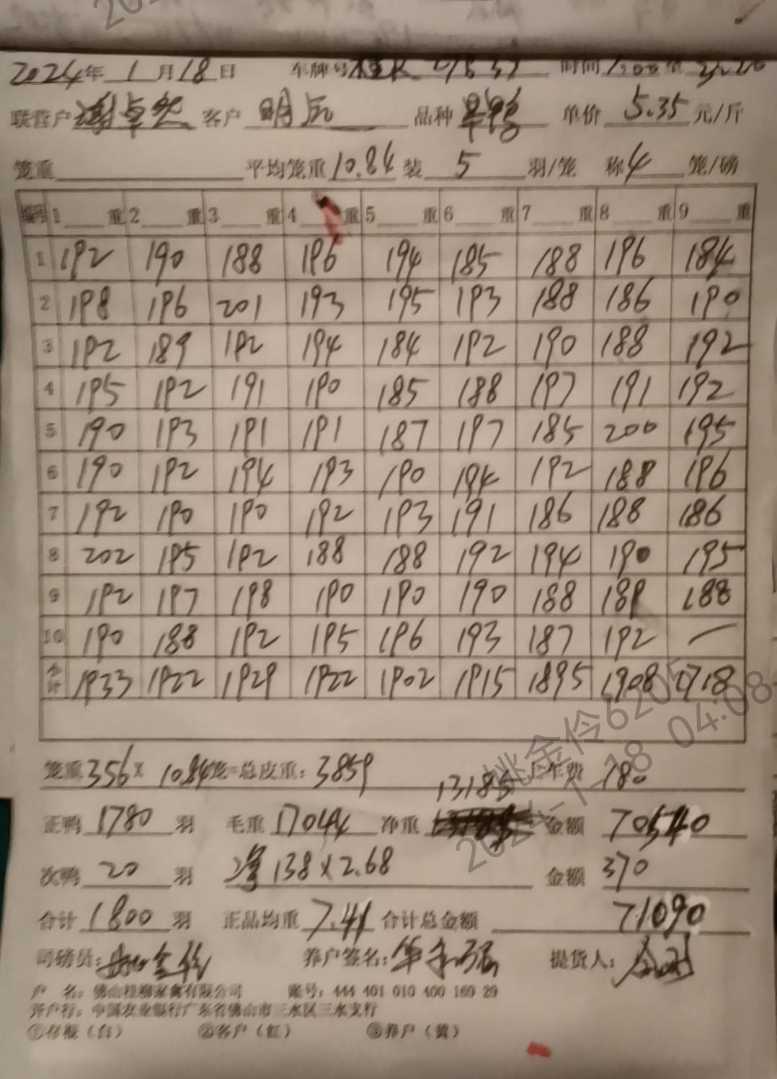 2024年 1月18日 车牌号 时间
联营户 客户 品种 单价 5.35 元/斤
笼重 平均笼重 10.84 装 5 羽/笼 称 4 笼/磅
编号 1 重 2 重 3 重 4 重 5 重 6 重 7 重 8 重 9 重
1 192 190 188 196 194 185 188 196 184
2 198 196 201 193 195 193 188 186 190
3 192 189 192 194 184 192 190 188 192
4 195 192 191 190 185 188 197 191 192
5 190 193 191 191 187 197 185 200 195
6 190 192 194 193 190 194 192 188 196
7 192 190 190 192 193 191 186 188 186
8 202 195 192 188 188 192 194 190 195
9 192 197 198 190 190 190 188 189 188
10 190 188 192 195 196 193 187 192 —
合计 1933 1922 1929 1922 1902 1915 1895 1908 1718
笼重 356 × 10.84 笼=总皮重: 3859 车费 180
正鸭 1780 羽 毛重 17044 净重 13185 金额 70540
次鸭 20 羽 净 138×2.68 金额 370
合计 1800 羽 正品均重 7.41 合计总金额 71090
司磅员: 养户签名: 提货人:
户 名: 佛山桂柳家禽有限公司 账号: 444 401 010 400 169 29
开户行: 中国农业银行广东省佛山市三水区三水支行
①存根(白) ②客户(红) ③养户(黄)
姚金伶6205
2024-1-18 04:08